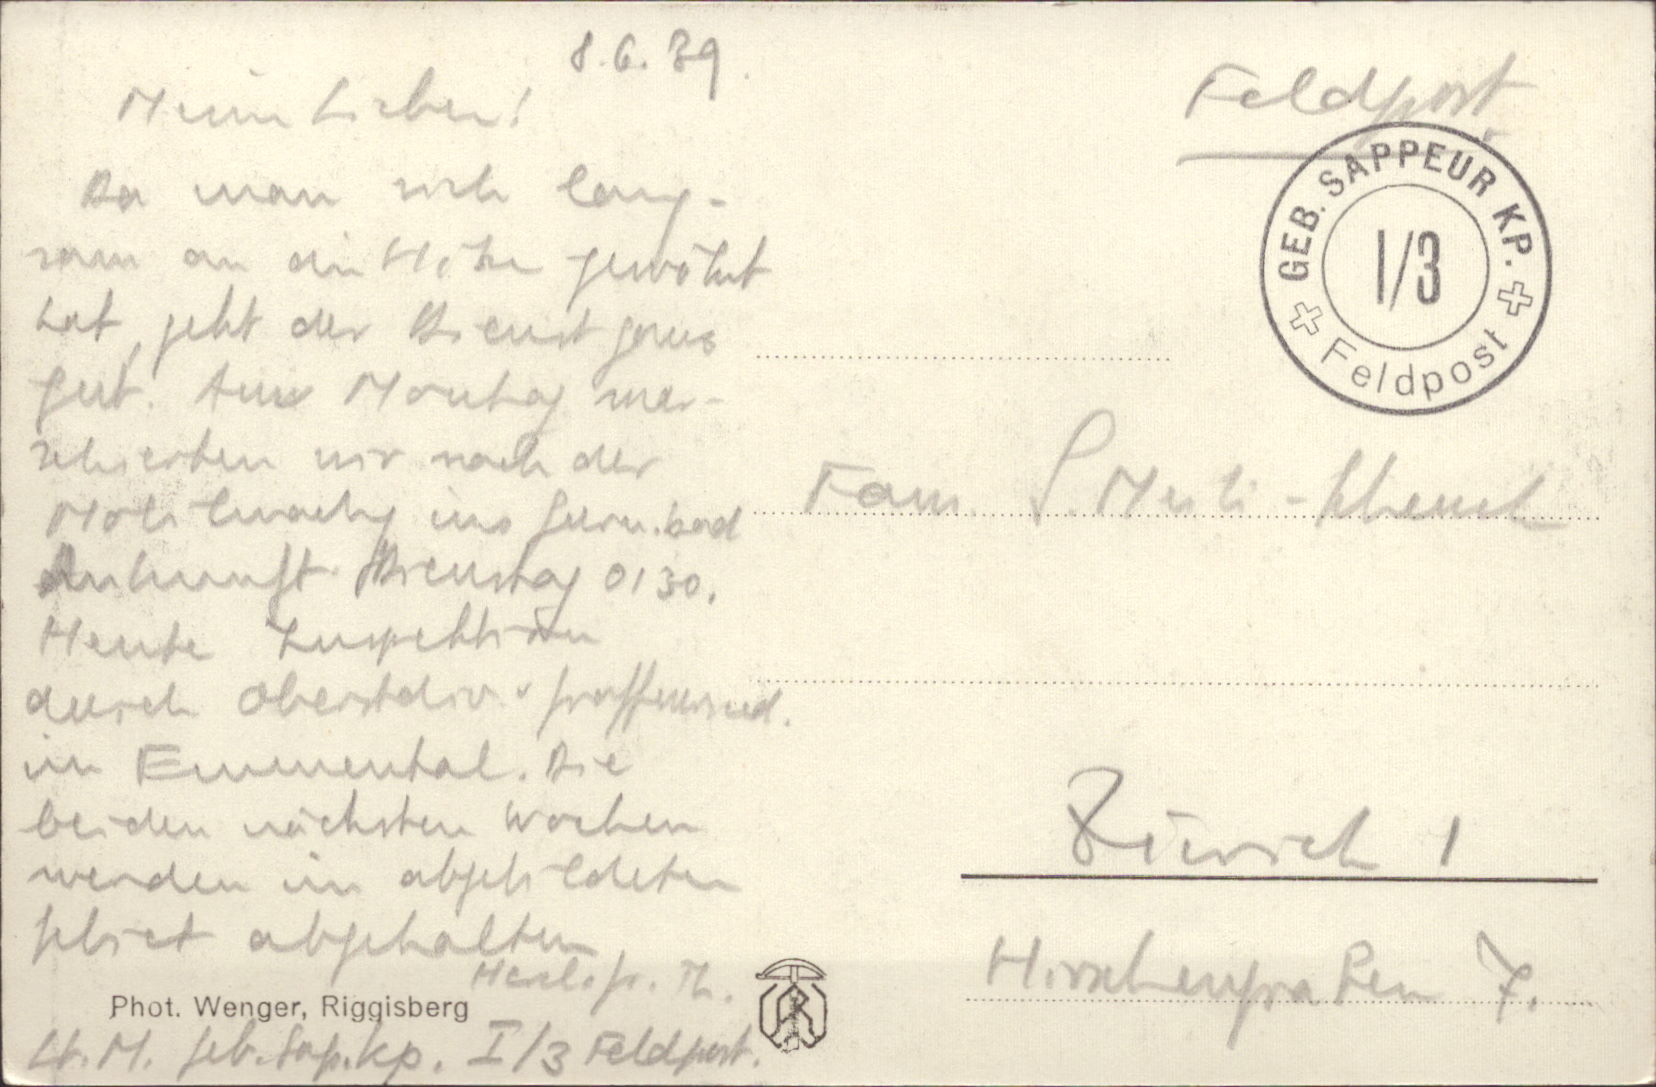 8.6.39.
Meine Lieben!
Da man sich lang-
sam an die Hitze gewöhnt
hat, geht der Dienst ganz
gut. Am Montag mar-
schierten wir nach der
Mobilmachg ins Gurn.bad
Ankunft Dienstag 0130.
Heute Inspektion
durch Oberstdiv.
im Emmental. Die
beiden nächsten Wochen
werden im abgebildeten
Gebiet abgehalten
Herzl. Gr. Th.
Phot. Wenger, Riggisberg
Lt. M. Geb. Sap. Kp. I/3 Feldpost.
Feldpost
GEB. SAPPEUR KP.
I/3
Feldpost
Fam.
Zürich 1
Hirschengraben 7.